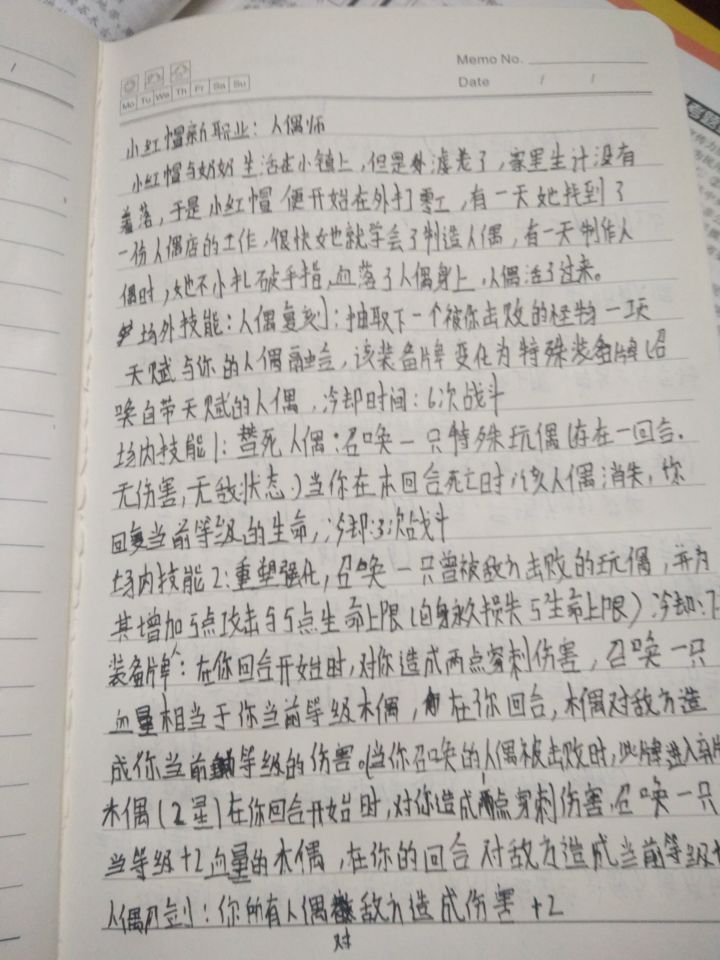 Memo No.
Date / /
Mo Tu We Th Fr Sa Su
小红帽新职业：人偶师
小红帽与奶奶生活在小镇上，但是外婆老了，家里生计没有
着落，于是小红帽便开始在外打零工，有一天她找到了
一份人偶店的工作，很快她就学会了制造人偶，有一天制作人
偶时，她不小扎破手指，血落了人偶身上，人偶活了过来。
场外技能：人偶复刻：抽取下一个被你击败的怪物一项天
天赋与你的人偶融合，该装备牌变化为特殊装备牌（召
唤自带天赋的人偶，冷却时间：6次战斗
场内技能1：替死人偶：召唤一只特殊玩偶（存在一回合，
无伤害，无敌状态）当你在本回合死亡时，该人偶消失，你
回复当前等级的生命，冷却：3次战斗
场内技能2：重塑强化，召唤一只曾被敌方击败的玩偶，并为
其增加5点攻击与5点生命上限（自身永久损失5生命上限）冷却：7
装备牌：在你回合开始时，对你造成两点穿刺伤害，召唤一只
血量相当于你当前等级木偶，在你回合，木偶对敌方造
成你当前等级的伤害。（当你召唤的人偶被击败时，此牌进入弃牌
木偶（2星）在你回合开始时，对你造成两点穿刺伤害，召唤一只
当等级+2血量的木偶，在你的回合对敌方造成当前等级+
人偶刀剑：你所有人偶对敌方造成伤害+2